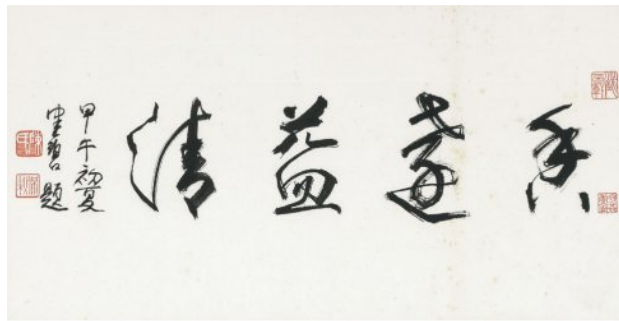 香遠益清
甲午初夏
健碧題